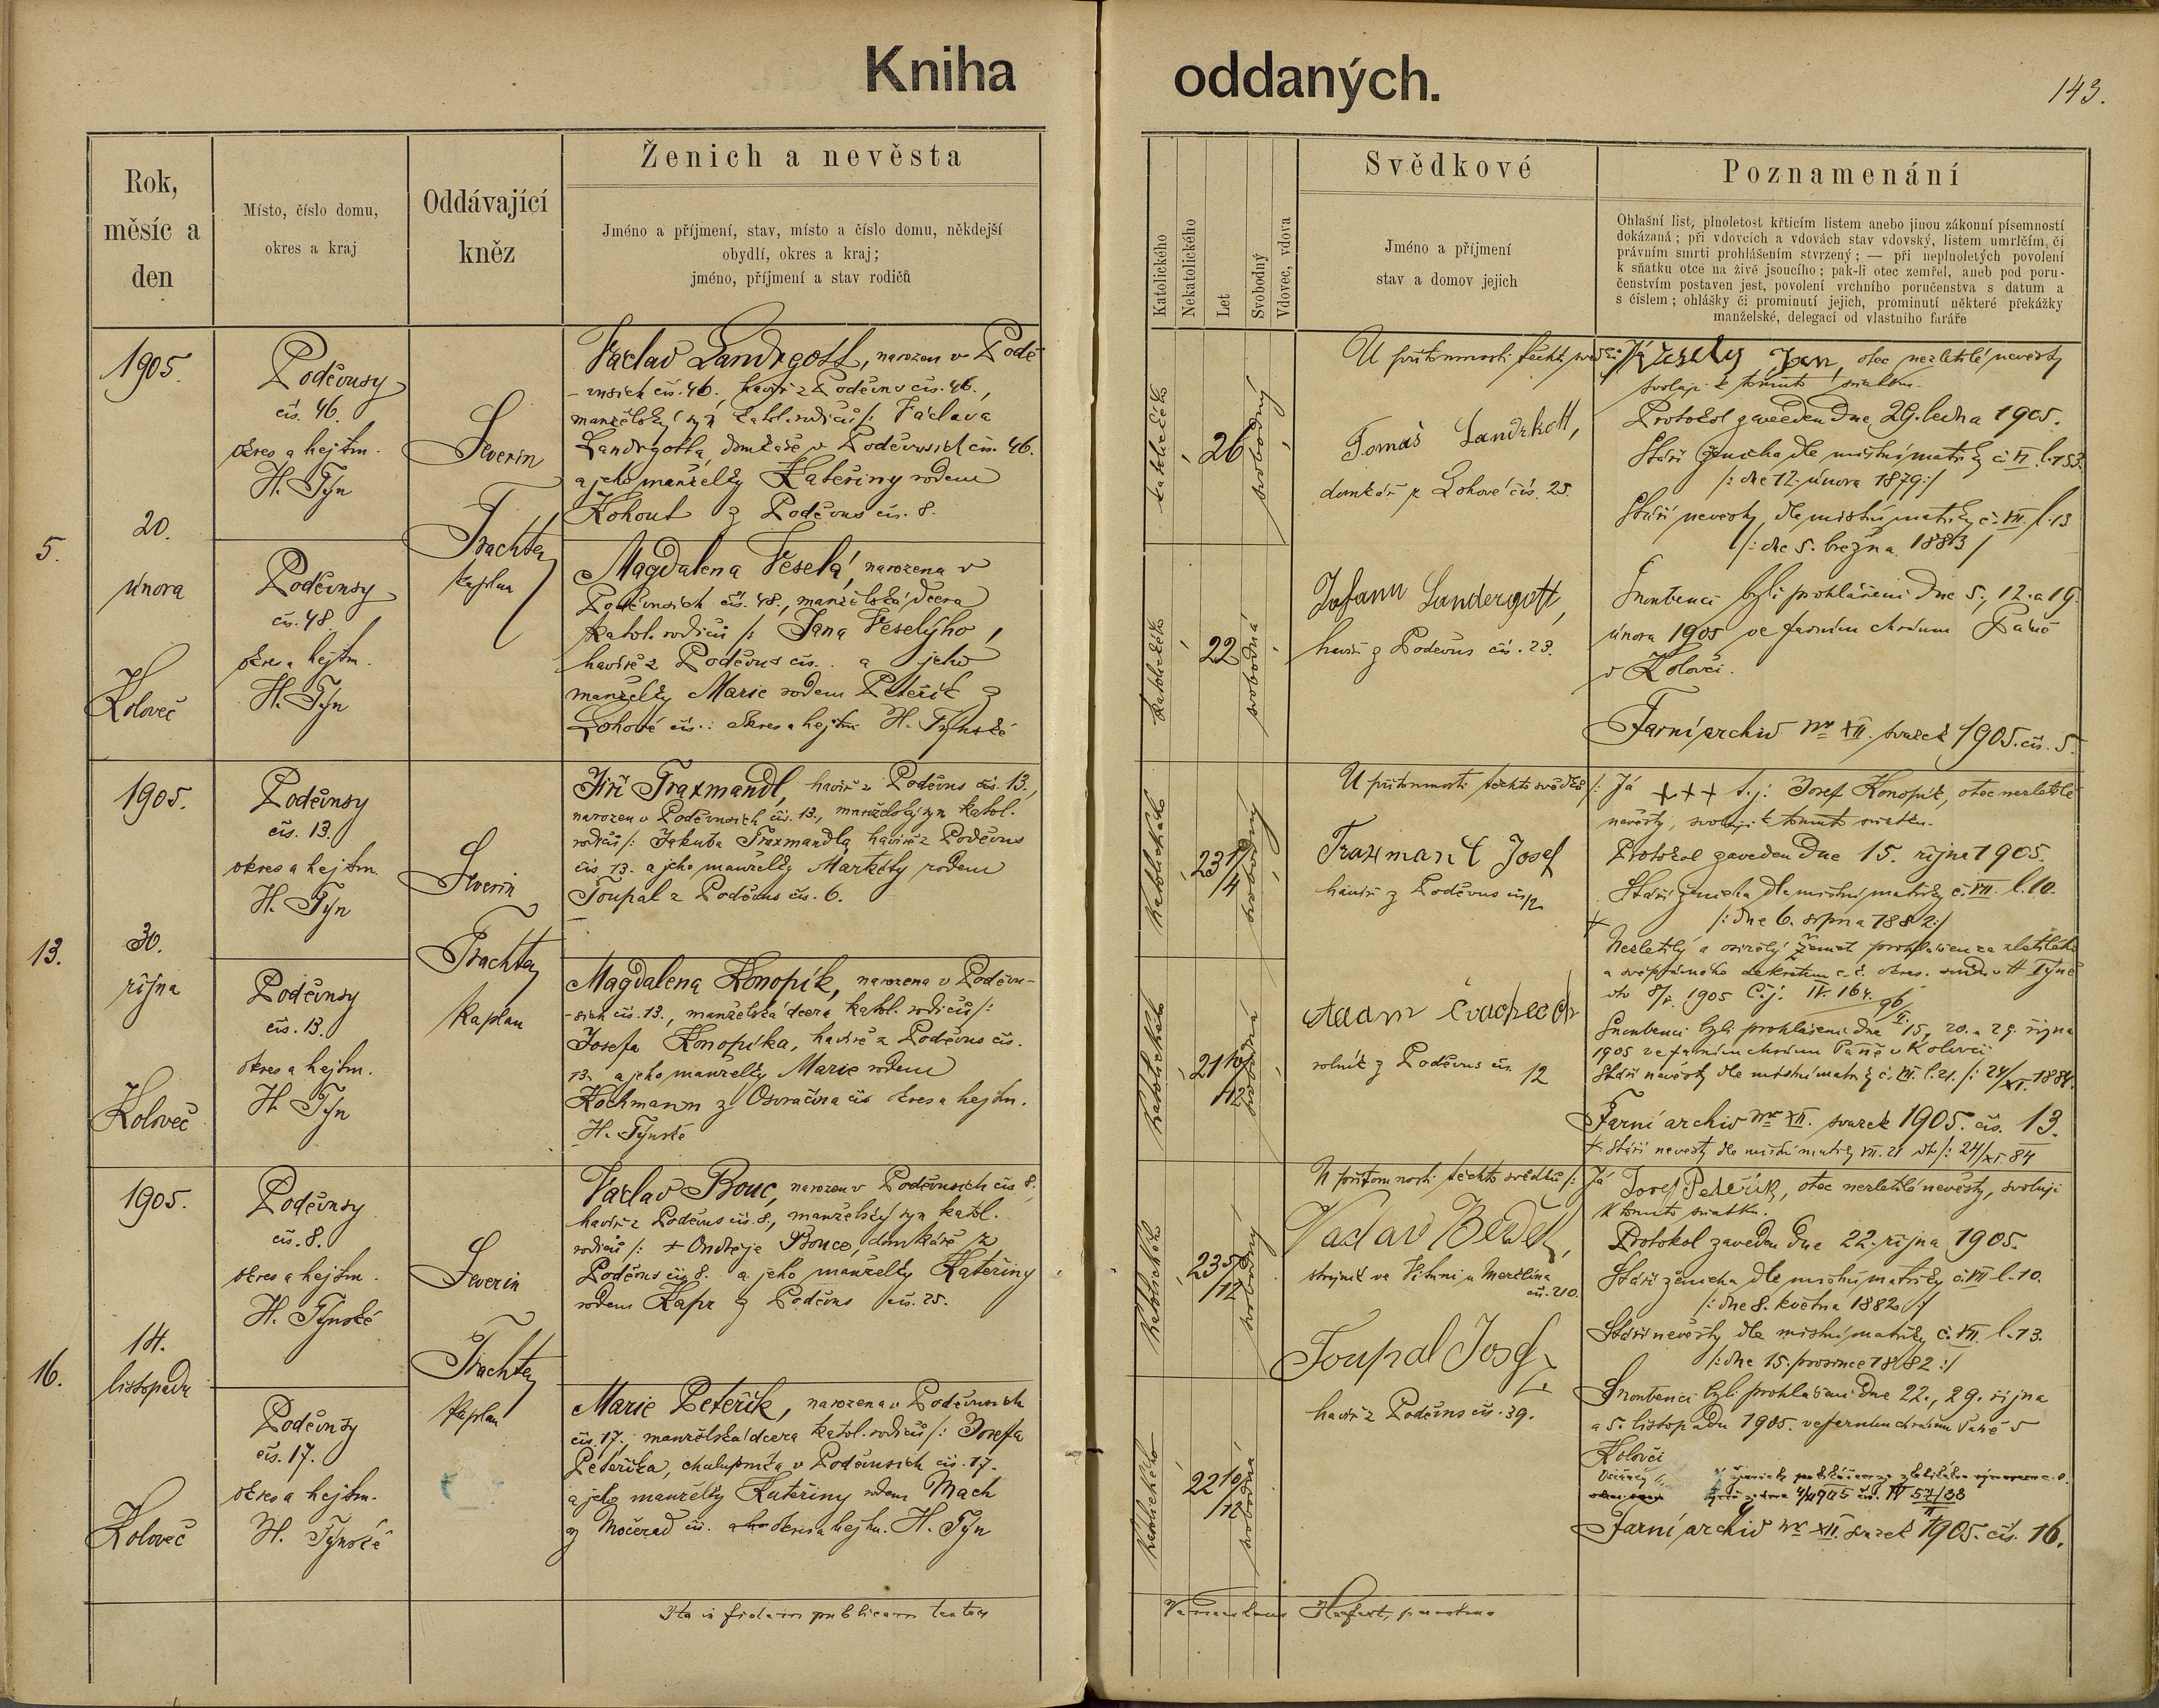 Kniha oddaných.
143.
Rok,
měsíc a
den
Místo, číslo domu,
okres a kraj
Oddávající
kněz
Ženich a nevěsta
Jméno a příjmení, stav, místo a číslo domu, někdejší
obydlí, okres a kraj;
jméno, příjmení a stav rodičů
Katolického
Nekatolického
Let
Svobodný
Vdovec, vdova
Svědkové
Jméno a příjmení
stav a domov jejich
Poznamenání
Ohlašní list, plnoletost křticím listem anebo jinou zákonní písemností
dokázaná; při vdovcích a vdovách stav vdovský, listem umrlčím, či
právním smrti prohlášením stvrzený; — při neplnoletých povolení
k sňatku otce na živě jsoucího; pak-li otec zemřel, aneb pod poru-
čenstvím postaven jest, povolení vrchního poručenstva s datum a
s číslem; ohlášky či prominutí jejich, prominutí některé překážky
manželské, delegací od vlastního faráře
5.
1905.
20.
února
Koloveč
Poděvusy
čís. 46.
okres a hejtm.
H. Týn
Poděvusy
čís. 48.
okres a hejtm.
H. Týn
Severin
Trachta
kaplan
Václav Landrgott, narozen v Podě-
-vusích čís. 46., havíř z Poděvus čís. 46.,
manželský syn katol. rodičů /: Václava
Landrgotta, domkáře v Poděvusích čís. 46.
a jeho manželky Kateřiny rodem
Kohout z Poděvus čís. 8.
Magdalena Veselá, narozena v
Poděvusích čís. 48., manželská dcera
katol. rodičů /: Jana Veselýho,
havíře z Poděvus čís. a jeho
manželky Marie rodem Peteřík z
Lohové čís.: okres a hejtm. H. Týnské
katolického
26
svobodný
katolického
22
svobodná
U přítomnosti těchto svědků
Tomáš Landrkott,
domkář z Lohové čís. 25.
Johann Landergott,
havíř z Poděvus čís. 23.
Já Veselý Jan, otec nezletilé nevěsty
svoluji k tomuto sňatku.
Protokol zaveden dne 29. ledna 1905.
Stáří ženicha dle místní matriky č. VI l. 153.
/: dne 12. února 1879 :/
Stáří nevěsty, dle místní matriky č. VII. l. 13
/: dne 5. března 1883 /
Snoubenci byli prohlášeni dne 5., 12. a 19.
února 1905 ve farním chrámu Páně
v Kolovči.
Farní archiv Nro XII. svazek 1905. čís. 5.
13.
1905.
30.
října
Koloveč
Poděvusy
čís. 13.
okres a hejtm.
H. Týn
Poděvusy
čís. 13.
okres a hejtm.
H. Týn
Severin
Trachta
kaplan
Jiří Traxmandl, havíř z Poděvus čís. 13.,
narozen v Poděvusích čís. 13., manželský syn katol.
rodičů /: Jakuba Traxmandla, havíře z Poděvus
čís. 13. a jeho manželky Markéty, rodem
Toupal z Poděvus čís. 6.
Magdalena Konopík, narozena v Poděvu-
-sích čís. 13., manželská dcera katol. rodičů /:
Josefa Konopíka, havíře z Poděvus čís.
13. a jeho manželky Marie rodem
Kochmann z Osvračína čís okres a hejtm.
H. Týnské
katolického
23 1/4
svobodný
katolického
21 10/12
svobodná
U přítomnosti těchto svědků /:
Traxmandl Josef
havíř z Poděvus čís 12
Adam
rolník z Poděvus čís. 12
Já +++ t. j. Josef Konopík, otec nezletilé
nevěsty, svoluji k tomuto sňatku.
Protokol zaveden dne 15. října 1905.
Stáří ženicha dle místní matriky č. VII. l. 10.
/: dne 6. srpna 1882 :/
Nezletilý a osiřelý ženich prohlášen za zletilého
a svéprávného dekretem c. k. okres. soudu v H Týně
1905 Č.j. IV. 164.
Snoubenci byli prohlášeni dne 15., 20. a 29. října
1905 ve farním chrámu Páně v Kolovči
Stáří nevěsty dle místní matriky č. VII. l. 21. /: 24/XI. 1884.
Farní archiv Nro XII. svazek 1905. čís. 13.
+ Stáří nevěsty dle místní matriky VII. 21 /: 24/XI. 84
16.
1905.
14.
listopadu
Koloveč
Poděvusy
čís. 8.
okres a hejtm.
H. Týnské
Poděvusy
čís. 17.
okres a hejtm.
H. Týnské
Severin
Trachta
kaplan
Václav Bouc, narozen v Poděvusích čís. 8.,
havíř z Poděvus čís. 8., manželský syn katol.
rodičů /: + Ondřeje Bouce, domkáře z
Poděvus čís 8. a jeho manželky Kateřiny
rodem Kapr z Poděvus čís. 25.
Marie Peteřík, narozena v Poděvusích
čís. 17., manželská dcera katol. rodičů /: Josefa
Peteříka, chalupníka v Poděvusích čís. 17.
a jeho manželky Kateřiny rodem Mach
z Močerad čís. okres a hejtm. H. Týn
katolického
23 5/12
svobodný
katolického
22 10/12
svobodná
U přítomnosti těchto svědků /:
Václav
strojník ve Vítuni u Merklína
čís. 210.
Toupal Josef
havíř z Poděvus čís. 39.
Já Josef Peteřík, otec nezletilé nevěsty, svoluji
k tomuto sňatku.
Protokol zaveden dne 22. října 1905.
Stáří ženicha dle místní matriky č. VII l. 10.
/: dne 8. května 1882 :/
Stáří nevěsty dle místní matriky č. VII. l. 13.
/: dne 15. prosince 1882 :/
Snoubenci byli prohlášeni dne 22., 29. října
a 5. listopadu 1905. ve farním chrámu Páně v
Kolovči
Farní archiv Nro XII. svazek 1905. čís. 16.
Ita in fidem publicam testor